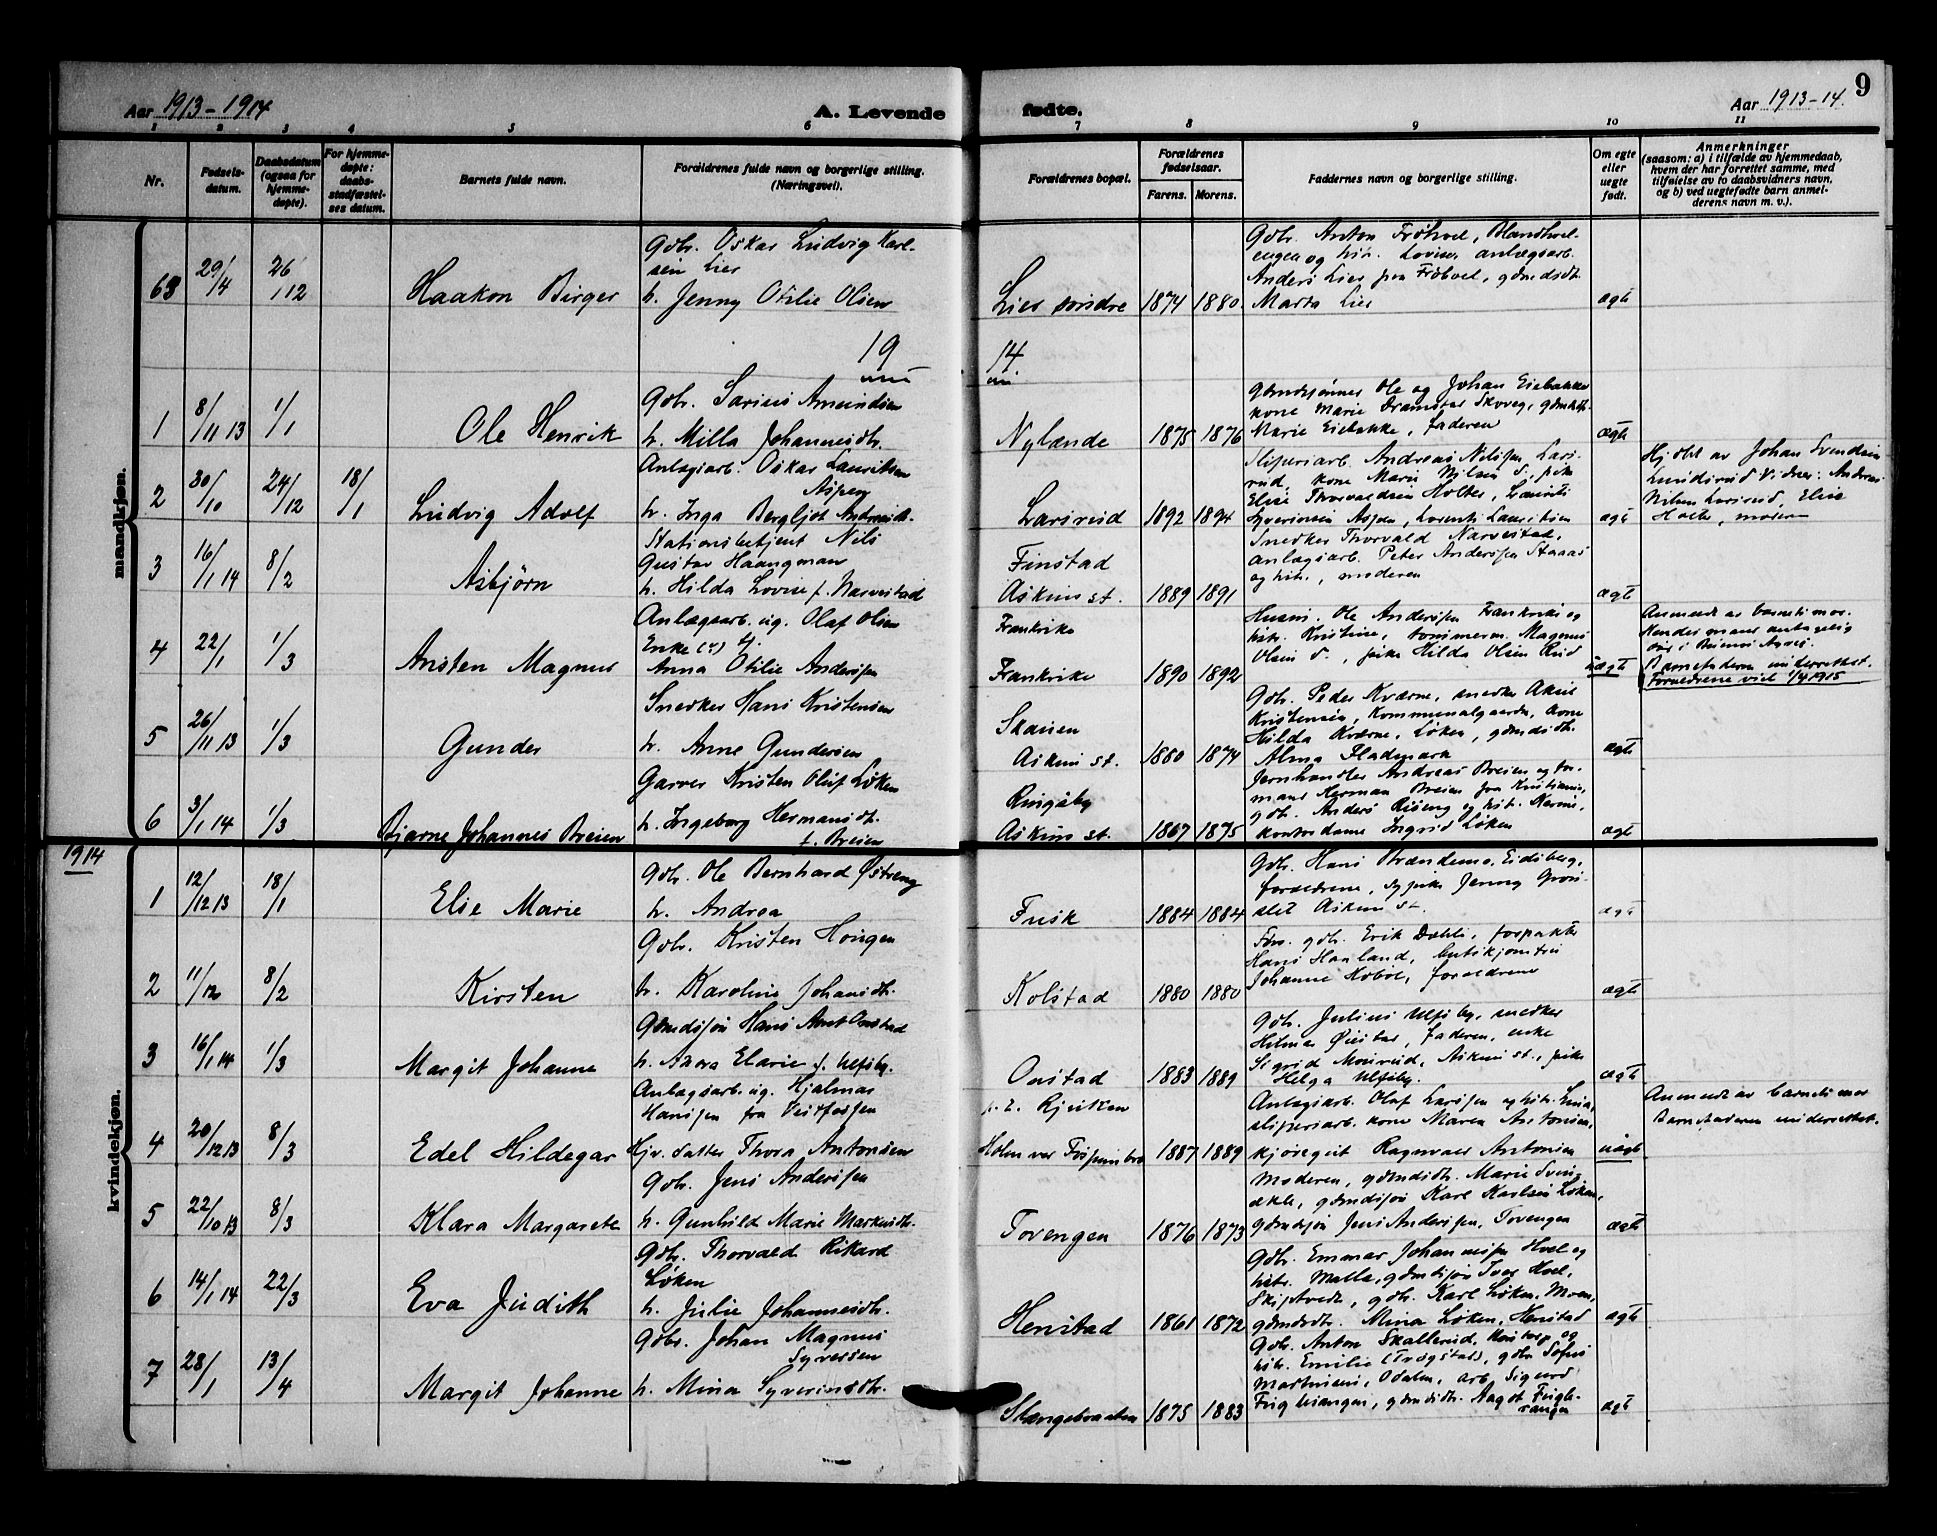 Aar 1913-1914
A. Levende
fødte.
Aar 1913-14.
9
1 2 3 4 5 6 7 8 9 10 11
Nr.
Fødsels-
datum.
Daabsdatum
(ogsaa for
hjemme-
døpte).
For hjemme-
døpte:
daabs-
stadfæstel-
ses datum.
Barnets fulde navn.
Forældrenes fulde navn og borgerlige stilling.
(Næringsvei).
Forældrenes bopæl.
Forældrenes
fødselsaar.
Farens. Morens.
Faddernes navn og borgerlige stilling.
Om egte
eller
uegte
født.
Anmerkninger
(saasom: a) i tilfælde av hjemmedaab,
hvem der har forrettet samme, med
tilføielse av to daabsvidners navn,
og b) ved uegtefødte barn anmel-
derens navn m. v.).
mandkjøn.
63 29/4 26/12 Haakon Birger
Gbr. Oskar Ludvig Karl-
sen Lier
h. Jenny Otilie Olsen
Lier søndre 1874 1880
Gbr. Anton Frøhvel,
Anders Lier fra Frøhvel, gdmdsdt.
Marta Lier
ægte
19
14.
1 8/11 13 1/1 Ole Henrik
Gbr. Sarius Amundsen
h. Milla Johannesdtr.
Nylænde 1875 1876
Gdmdsønner Ole og Johan Eiebakke
kone Marie Dramstad Skoveg, gdmdsdt.
Marie Eiebakke, faderen
ægte
2 30/10 24/12 18/1 Ludvig Adolf
Anlægsarb. Oskar Lauritsen
Aspen
h. Inga Bergljot Andreasdt.
Larsrud 1892 1894
Sliperiarb. Andreas Nilssen Lars-
rud, kone Marie Nilsen d., pike
Elise Thorvaldsen Holter, Laurits
Syversen Aspen, Lorentz Lauritsen
ægte
Hj.døbt av Johan Svendsen
Lundsrud Vidner: Andreas
Nilsen Larsrud, Elise
Holte, moderen
3 16/1 14 8/2 Asbjørn
Stationsbetjent Nils
Gustav Haangman
h. Hilda Lovise f. Narvestad
Finstad
Askim st. 1889 1891
Snedker Thorvald Narvestad,
anlægsarb. Peter Anderssen Staaas
og hstr., moderen
ægte
4 22/1 1/3 Ansten Magnus
Anlægsarb. ug. Olaf Olsen
Enke
Anna Otilie Anderssen
Frankrike
Frankrike 1890 1892
Husm. Ole Anderssen Frankrike og
hstr. Kristine, tømmerm. Magnus
Olsen d., pike Hilda Olsen Rud
uægte
Anmeldt av barnets mor.
Hendes mand antagelig
død i Buenos Ayres.
Barnefaderen underrettet.
Forældrene viet 1/4 1915
5 26/11 13 1/3 Gunder
Snedker Hans Kristensen
h. Anne Gundersen
Skansen
Askim st. 1880 1874
Gbr. Peder Kværne, snedker Aksel
Kristensen, Kommunalgaarden, kone
Hilda Kværne, Løken, gdmdsdt.
Alma Flademark
ægte
6 3/1 14 1/3 Bjarne Johannes Breien
Garver Kristen Oluf Løken
h. Ingeborg Hermansdt.
f. Breien
Ringsby
Askim st. 1867 1875
Jernhandler Andreas Breien og for-
mand Herman Breien fra Kristiania,
gbr. Anders Riseng og hstr.
kontordame Ingrid Løken
ægte
1914
kvindekjøn.
1 12/12 13 18/1 Else Marie
Gbr. Ole Bernhard Østreng
h. Andrea
Fusk 1884 1884
Gbr. Hans Brændemo, Eidsberg,
forældrene, sypike Jenny Gron-
slet Askim st.
ægte
2 11/12 8/2 Kirsten
Gbr. Kristen Hougen
h. Karoline Johansdt.
Kolstad 1880 1880
Forv. gbr. Erik Dahle, forpakter
Hans Haaland, butikjomfru
Johanne Hobøl, forældrene
ægte
3 16/1 14 1/3 Margit Johanne
Gdmdssøn Hans Arnt Onstad
h. Laura Elarie f. Ulfsby.
Onstad 1883 1889
Gbr. Julius Ulfsby, snedker
Hilmar Øiestad, faderen, enke
Sigrid Monsrud, Askim st., pike
Helga Ulfsby.
ægte
4 20/12 13 8/3 Edel Hildegar
Anlægsarb. ug. Hjalmar
Hanssen fra Vestfossen
Hjv. datter Thora Antonsen
p. t. Rjukan
Holm ved Fossum bro 1887 1889
Anlægsarb. Olaf Larssen og hstr. Lina,
sliperiarb. kone Maren Antonsen,
kjøregut Ragnvald Antonsen
uægte
Anmeldt av barnets mor
Barnefaderen underrettet.
5 22/10 13 8/3 Klara Margarete
Gbr. Jens Anderssen
h. Gunhild Marie Markusdt.
Tovengen 1876 1873
Moderen, gdmdsdt. Marie Sving-
økle, gdmdssøn Karl Karlsen Løken,
gdmdssøn Jens Anderssen, Tovengen
ægte
6 14/1 14 22/3 Eva Judith
Gbr. Thorvald Rikard
Løken
h. Julie Johannesdt.
Henstad 1861 1872
Gbr. Emmar Johannessen Hoel og
hstr. Malla, gdmdssøn Ivar Hoel,
Skiptvedt, gbr. Karl Løken, Moen,
gdmdsdt. Mina Løken, Henstad
ægte
7 28/1 13/4 Margit Johanne
Gbr. Johan Magnus
Syversen
h. Mina Syverinsdt.
Slangebraaten 1875 1883
Gbr. Anton Skallerud, og
hstr. Emilie (Trøgstad), gbr. Sofus
Martinsen, Odalen, arb. Sigurd
Fuglesangen, gdmdsdt. Aagot Fugle-
sangen
ægte